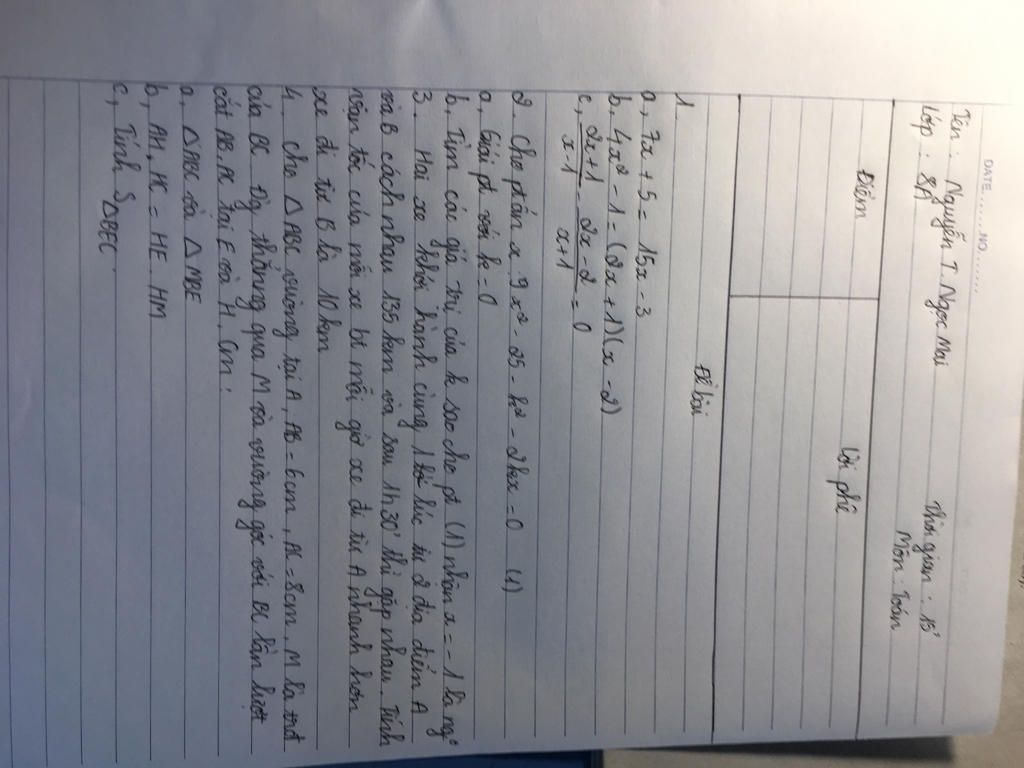 DATE.......NO........
Tên : Nguyễn T. Ngọc Mai
Thời gian : 15'
Lớp : 8A
Môn : Toán
Điểm
Lời phê
Đề bài
1.
a, 7x + 5 = 15x - 3
b, 4x² - 1 = (2x + 1)(x - 2)
c, (2x+1)/(x-1) - (2x-2)/(x+1) = 0
2. Cho pt ẩn x 9x² - 25 - k² - 2kx = 0 (1)
a, Giải pt với k = 0
b, Tìm các giá trị của k sao cho pt (1) nhận x = -1 là ng°
3. Hai xe khởi hành cùng 1 lúc từ 2 địa điểm A
và B cách nhau 135km và sau 1h30' thì gặp nhau. Tính
vận tốc của mỗi xe bt mỗi giờ xe đi từ A nhanh hơn
xe đi từ B là 10km
4. Cho △ABC vuông tại A, AB = 6cm, AC = 8cm, M là
của BC. Đg thẳng qua M và vuông góc với BC lần lượt
cắt AB, AC tại E và H. Cm :
a, △ABC và △MBE
b, AH. HC = HE. HM
c, Tính S△BEC.